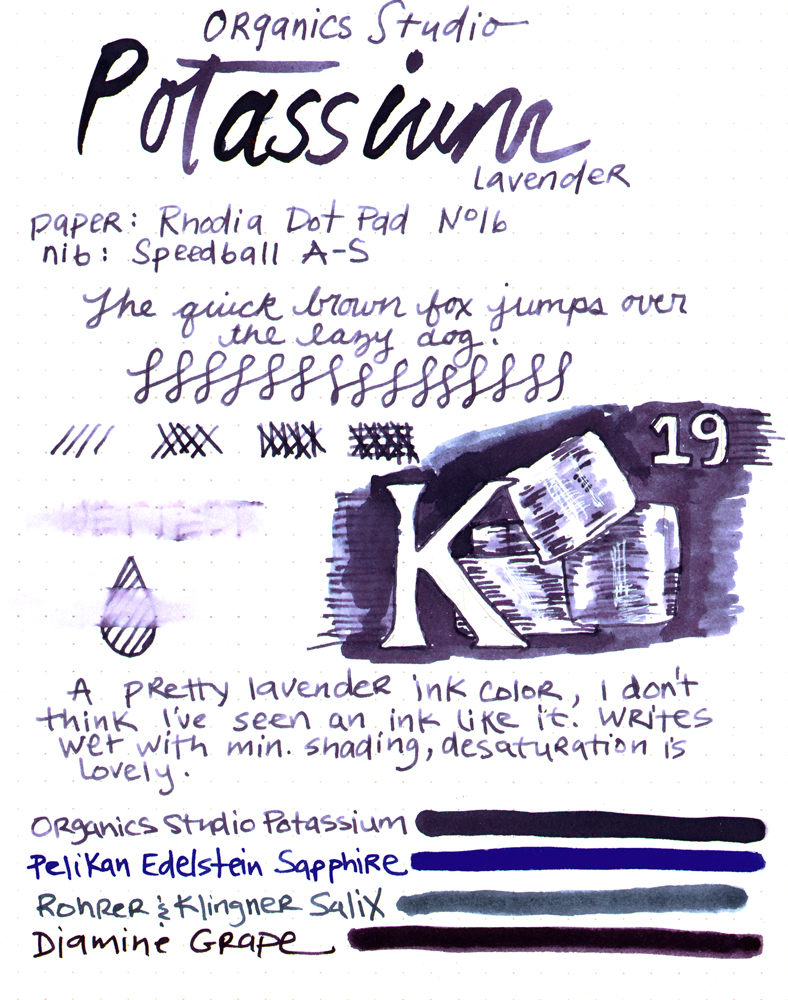 Organics Studio
Potassium
Lavender
paper: Rhodia Dot Pad Nº16
nib: Speedball A-5
The quick brown fox jumps over
the lazy dog.
19
K
WET TEST
A pretty lavender ink color, I don't
think I've seen an ink like it. Writes
wet with min. shading, desaturation is
lovely.
Organics Studio Potassium
Pelikan Edelstein Sapphire
Rohrer & Klingner Salix
Diamine Grape